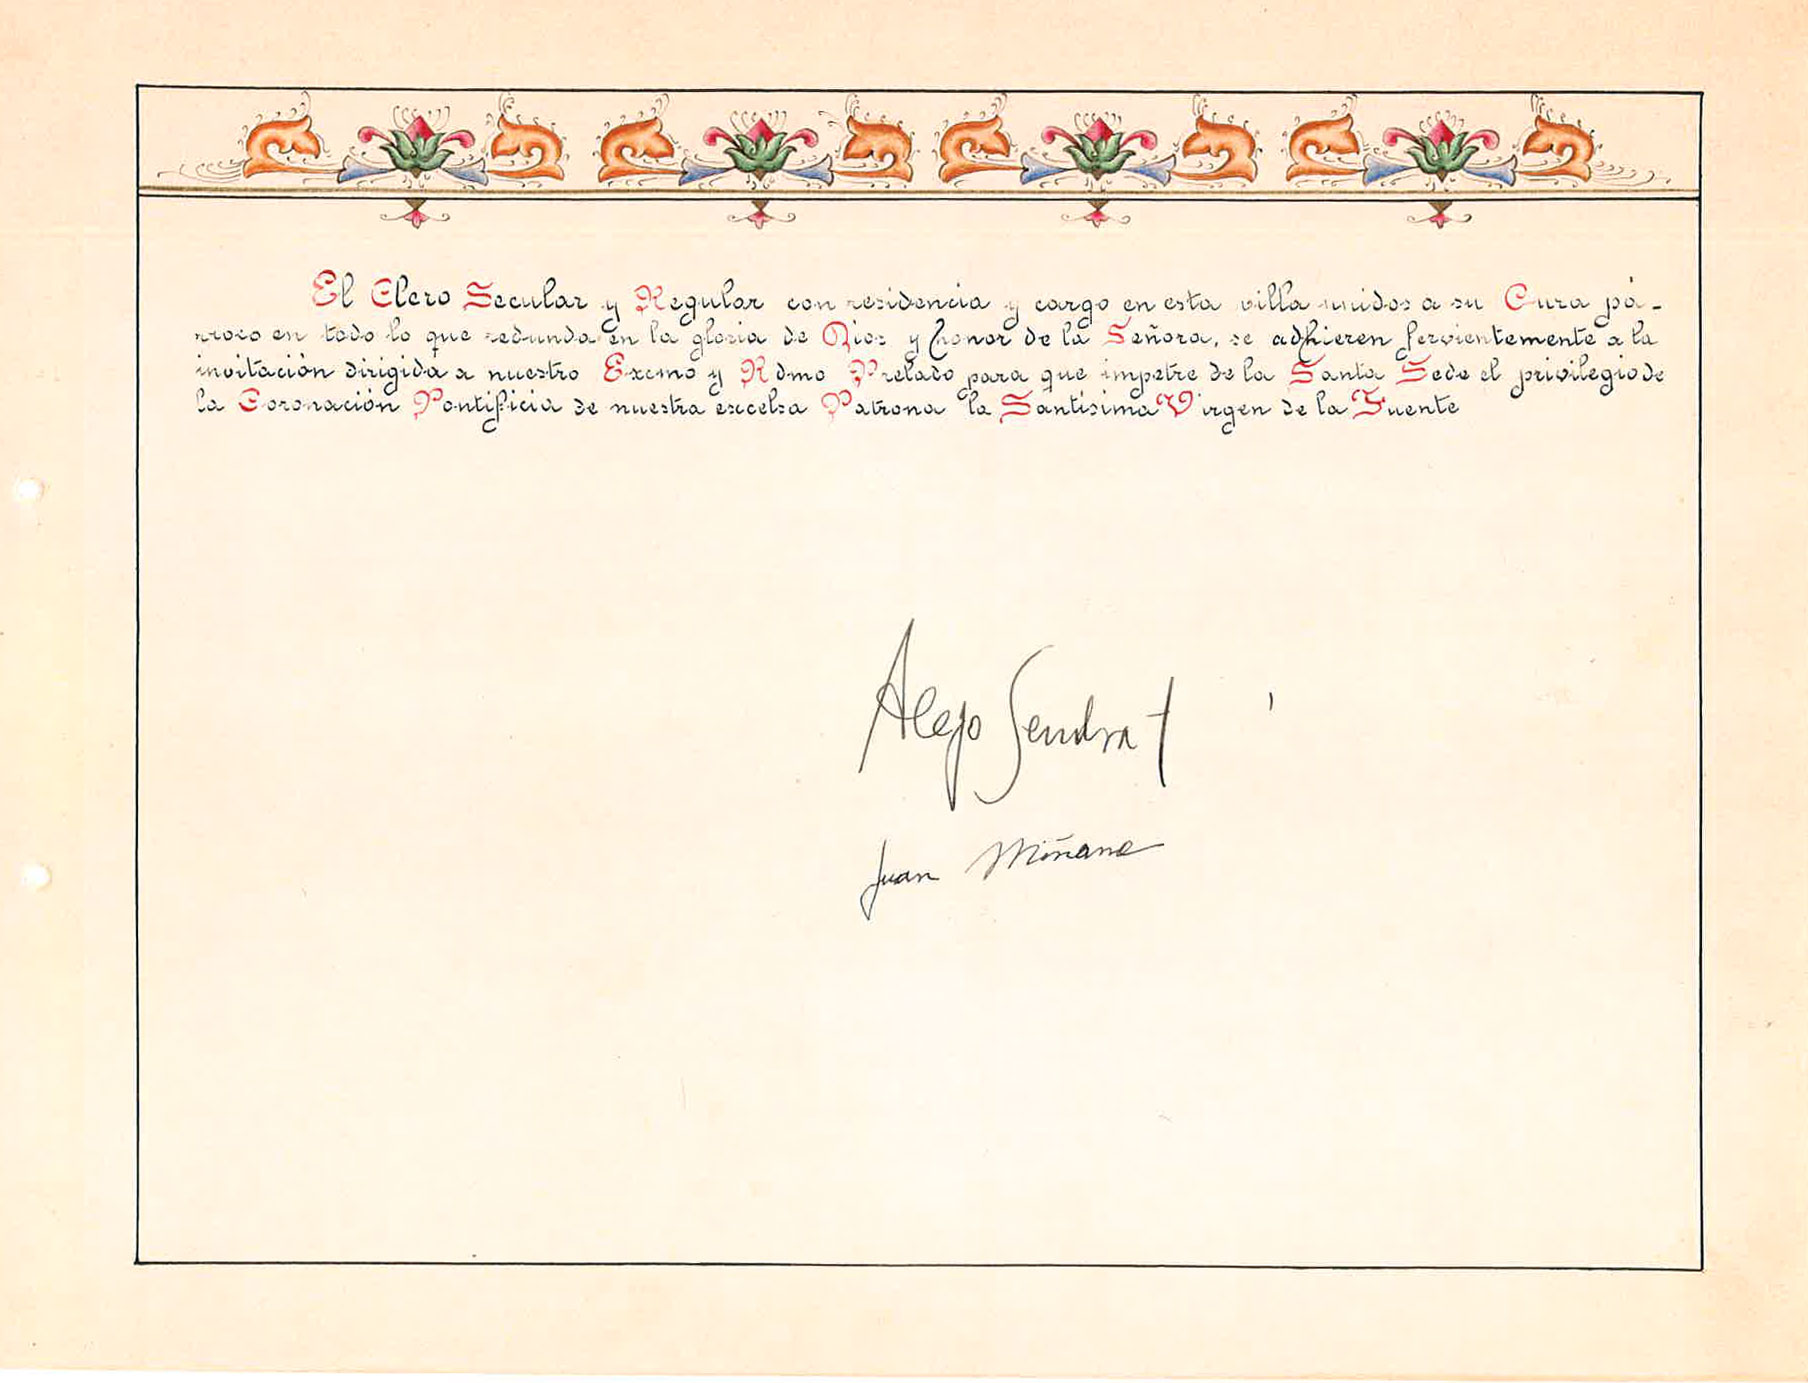 El Clero Secular y Regular con residencia y cargo en esta villa unidos a su Cura pá-
rroco en todo lo que redunda en la gloria de Dios y honor de la Señora, se adhieren fervientemente a la
invitación dirigida a nuestro Excmo y Rdmo Prelado para que impetre de la Santa Sede el privilegio de
la Coronación Pontificia de nuestra excelsa Patrona la Santísima Virgen de la Fuente
Alejo Sendra
Juan Miñana